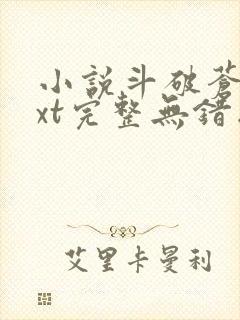 小說斗破蒼
xt完整無錯
艾里卡曼利